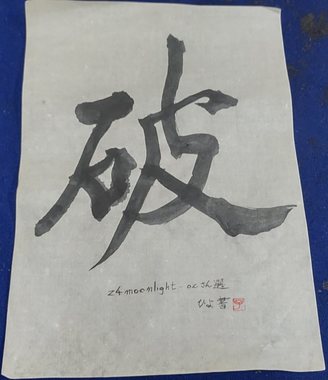 破
z4moonlight-ocさん選
ひよ書